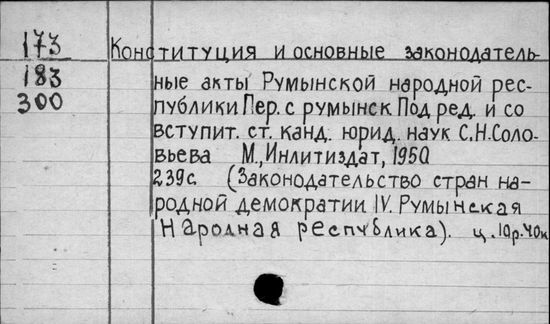 173 Конституция и основные законодатель-
183 ные акты Румынской народной рес-
300 публики Пер. с румынск. Под ред. и со
вступит. ст. канд. юрид. наук С.Н. Соло-
вьева М., Инлитиздат, 1950
239с. (Законодательство стран на-
родной демократии IV. Румынская
Народная республика). ц. 10р.40к